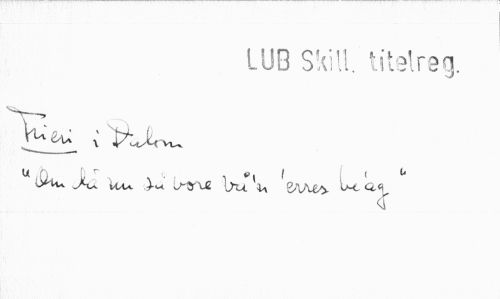 LUB Skill. titelreg.
Frieri i Dalom
"Om då nu så vore vå'n 'erres be'ag"